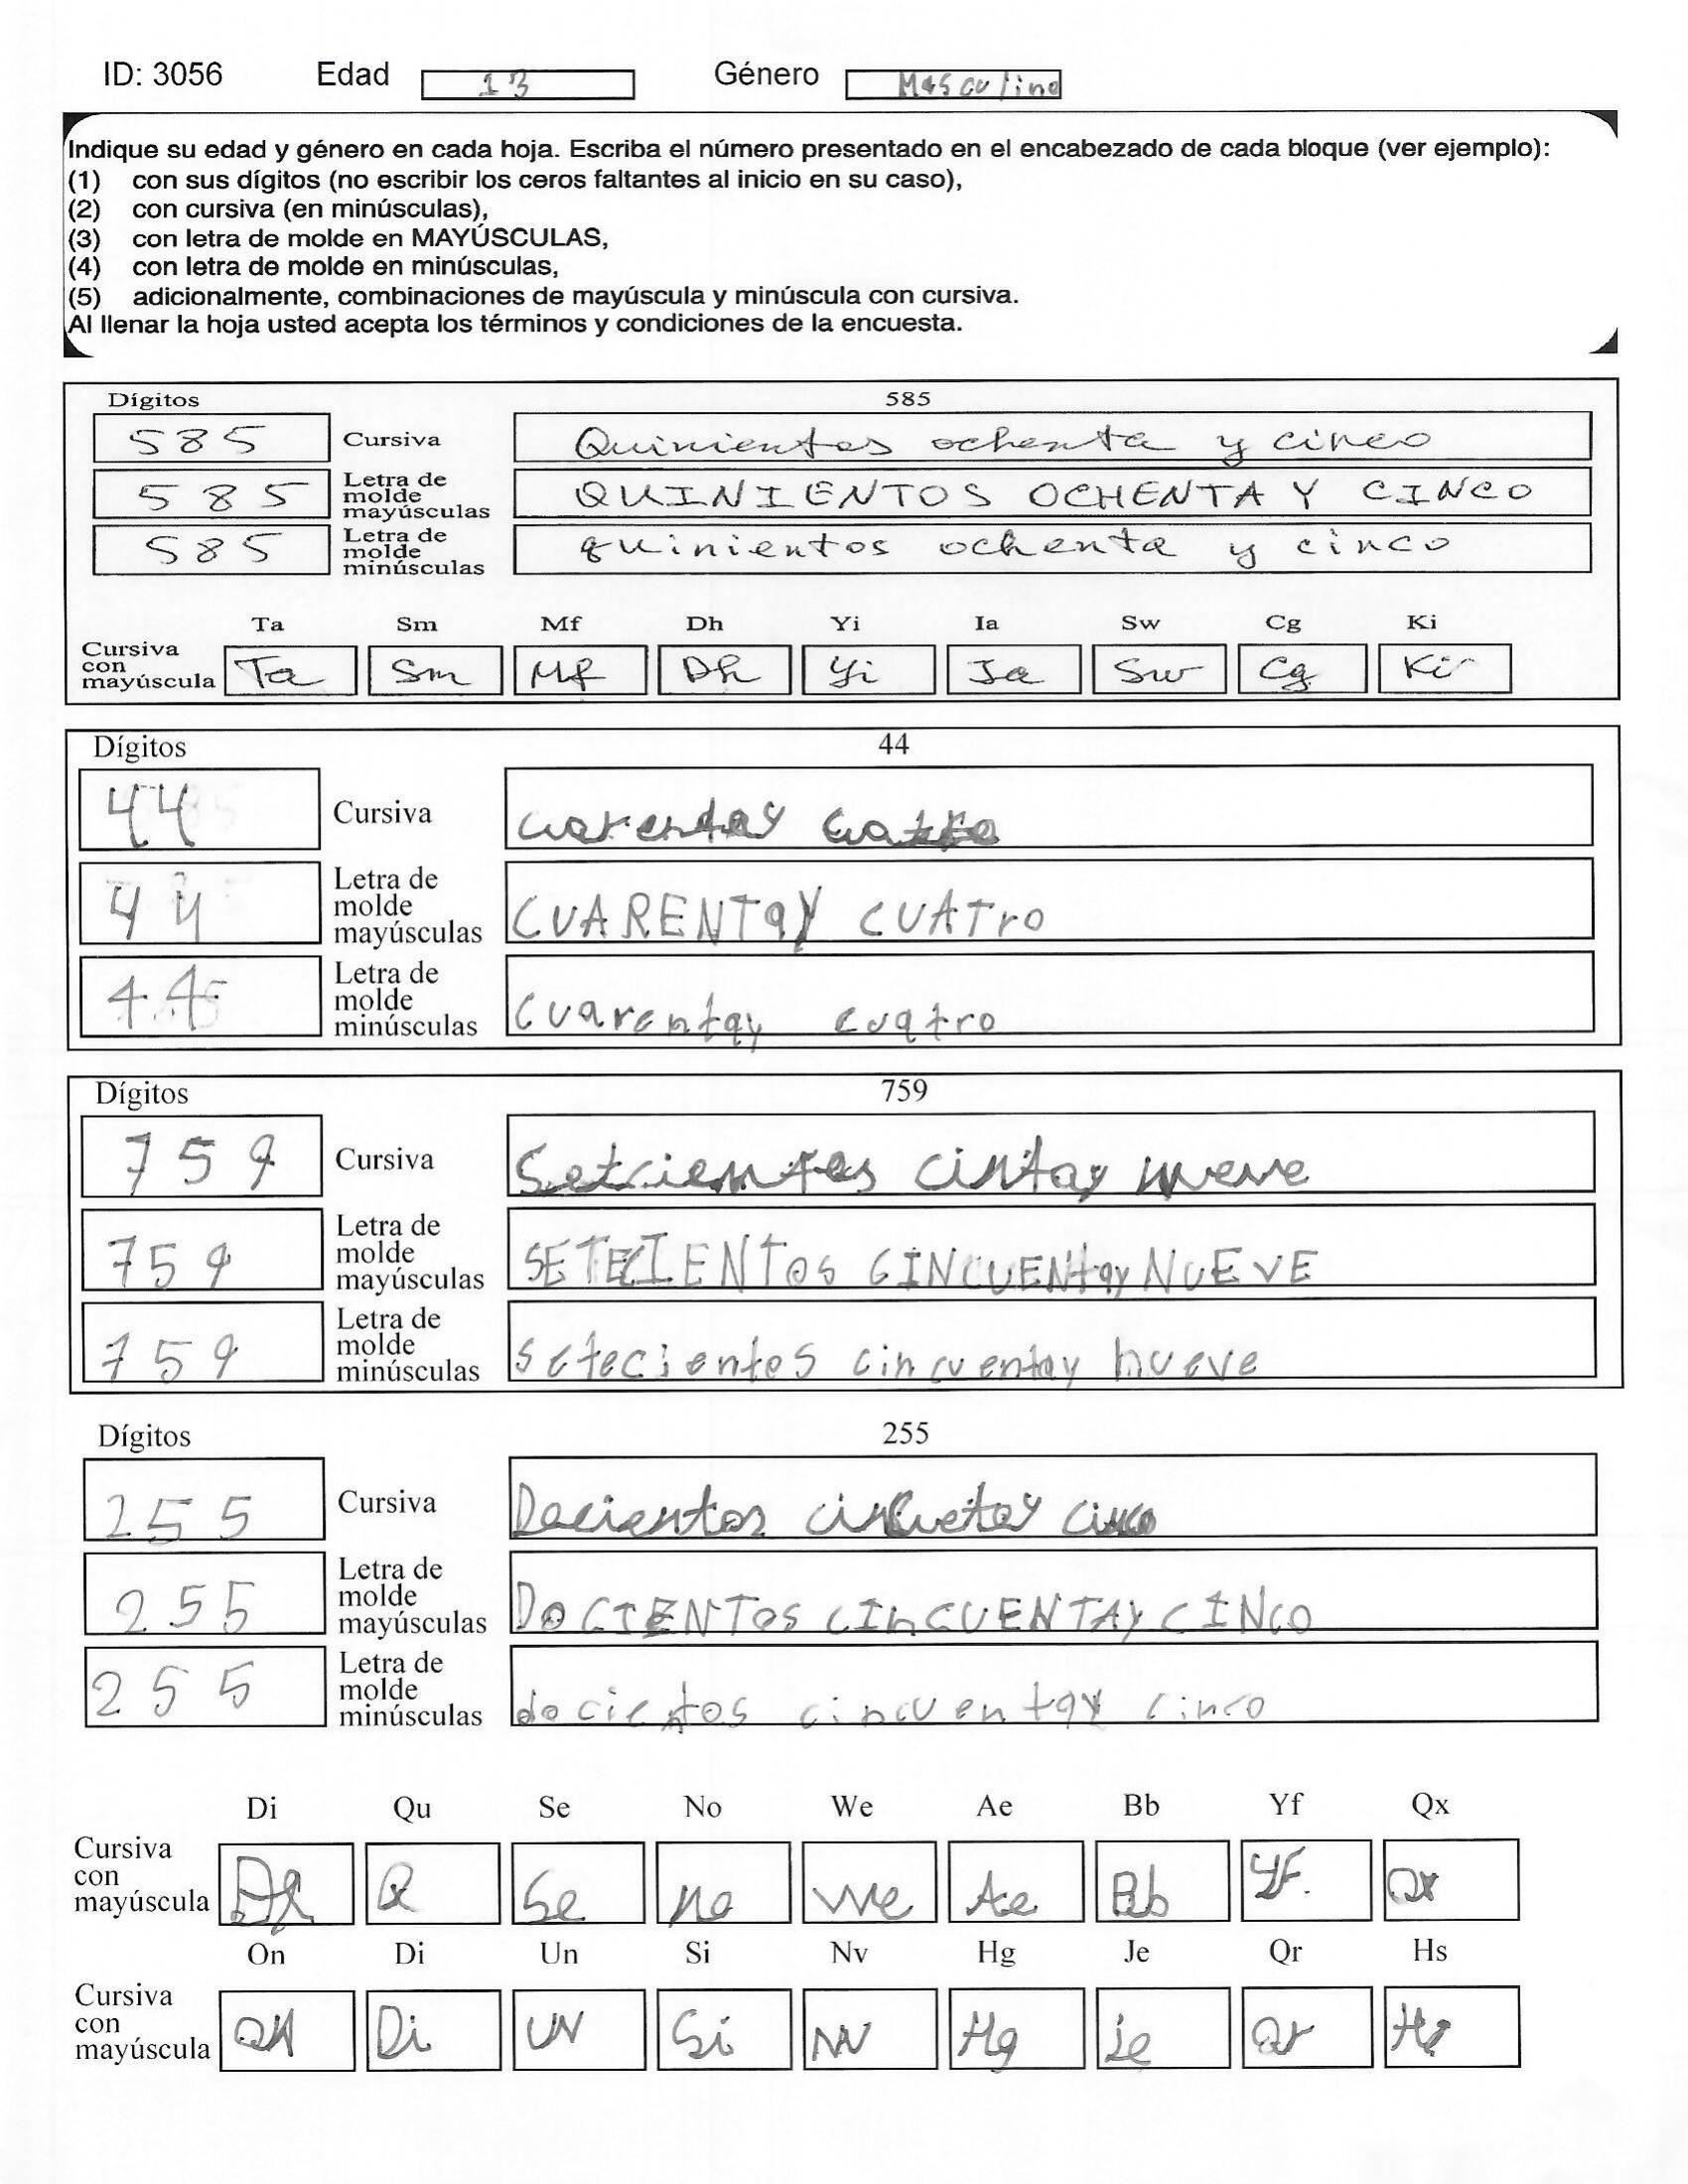 ID: 3056 Edad 13 Género Masculino
Indique su edad y género en cada hoja. Escriba el número presentado en el encabezado de cada bloque (ver ejemplo):
(1) con sus dígitos (no escribir los ceros faltantes al inicio en su caso),
(2) con cursiva (en minúsculas),
(3) con letra de molde en MAYÚSCULAS,
(4) con letra de molde en minúsculas,
(5) adicionalmente, combinaciones de mayúscula y minúscula con cursiva.
Al llenar la hoja usted acepta los términos y condiciones de la encuesta.
Dígitos 585
585 Cursiva Quinientos ochenta y cinco
585 Letra de molde mayúsculas QUINIENTOS OCHENTA Y CINCO
585 Letra de molde minúsculas quinientos ochenta y cinco
Ta Sm Mf Dh Yi Ia Sw Cg Ki
Cursiva con mayúscula Ta Sm Mf Dh Yi Ia Sw Cg Ki
Dígitos 44
44 Cursiva cuarentay cuatro
44 Letra de molde mayúsculas CUARENTaY CUATro
44 Letra de molde minúsculas cuarentay cuatro
Dígitos 759
759 Cursiva Setcientos cintay nueve
759 Letra de molde mayúsculas SETECIENTos CINCUENtay NUEVE
759 Letra de molde minúsculas setecientos cincuentay nueve
Dígitos 255
255 Cursiva Docientos cincuetay cinco
255 Letra de molde mayúsculas DoCIENTos CInCUENTAY CINCO
255 Letra de molde minúsculas docientos cincuentay cinco
Di Qu Se No We Ae Bb Yf Qx
Cursiva con mayúscula Q Se No We Ae Bb Yf. Qx
On Di Un Si Nv Hg Je Qr Hs
Cursiva con mayúscula On Di UN Si NV Hg je Qr Hs